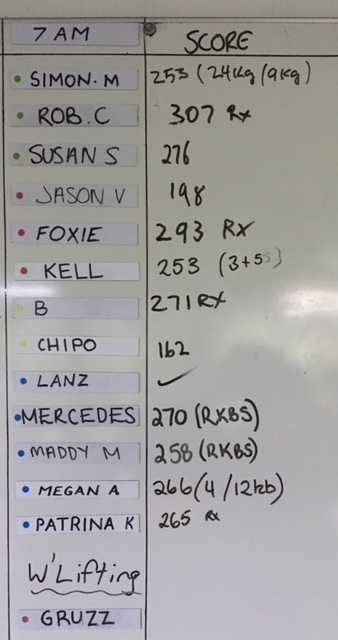 7 AM SCORE
SIMON. M 253 (24kg/9kg)
ROB. C 307 Rx
SUSAN S 276
JASON V 198
FOXIE 293 RX
KELL 253 (3+55)
B 271 RX
CHIPO 162
LANZ ✓
MERCEDES 270 (RXBS)
MADDY M 258 (RKBS)
MEGAN A 266 (4/12kb)
PATRINA K 265 Rx
W'Lifting
GRUZZ